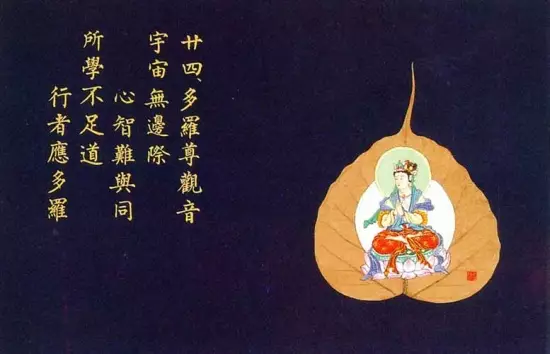 廿四、多羅尊觀音
宇宙無邊際
心智難與同
所學不足道
行者應多羅